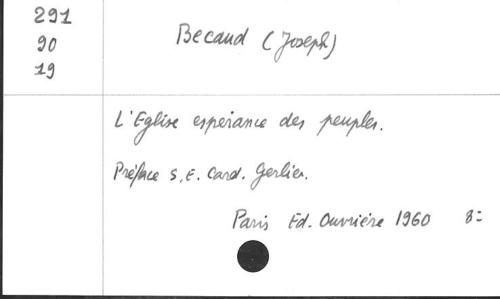 291
90
19
Becaud (Joseph)
L'Eglise espérance des peuples.
Préface S.E. Card. Gerlier.
Paris Ed. Ouvrière 1960 8: